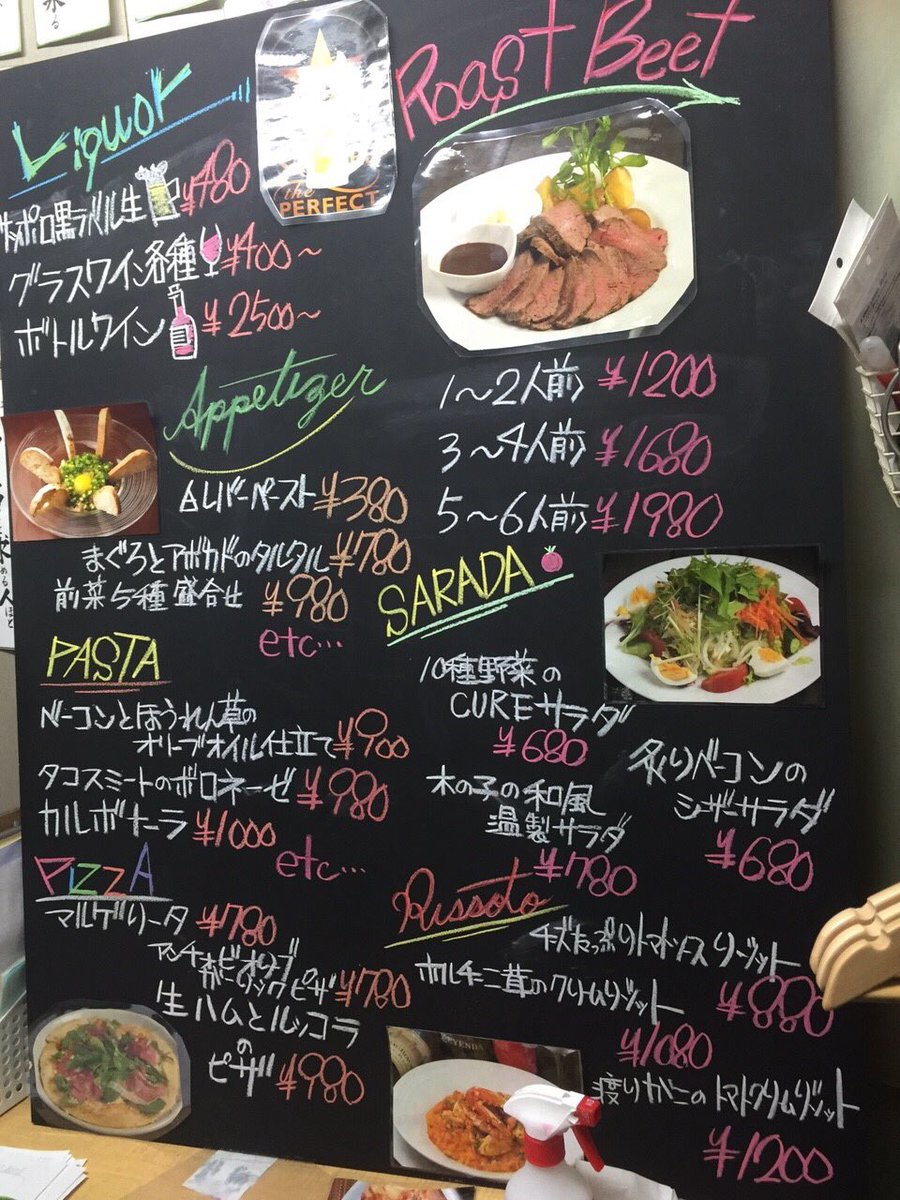 Liquor
サッポロ黒ラベル生 ¥480
グラスワイン各種 ¥400~
ボトルワイン ¥2500~
the
PERFECT
Roast Beef
1~2人前 ¥1200
3~4人前 ¥1680
5~6人前 ¥1980
Appetizer
白レバーペースト ¥380
まぐろとアボカドのタルタル ¥780
前菜5種盛合せ ¥980
etc...
SARADA
10種野菜の
CUREサラダ
¥680
木の子の和風
温製サラダ
¥780
炙りベーコンの
シーザーサラダ
¥680
PASTA
ベーコンとほうれん草の
オリーブオイル仕立て ¥900
タコスミートのボロネーゼ ¥980
カルボナーラ ¥1000
etc...
PIZZA
マルゲリータ ¥780
アンチョビオリーブ
ガーリックピザ ¥780
生ハムとルッコラ
の
ピザ ¥980
Rissoto
チーズたっぷりトマトソースリゾット
¥880
ポルチーニ茸のクリームリゾット
¥1080
渡りがにのトマトクリームリゾット
¥1200